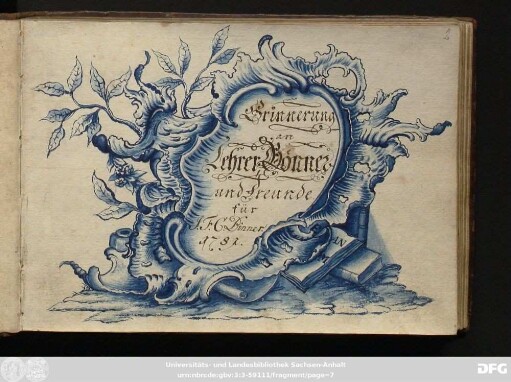 Erinnerung
an
Lehrer Gönner
und Freunde
für
J. F. C. Dinner
1781.
Universitäts- und Landesbibliothek Sachsen-Anhalt
urn:nbn:de:gbv:3:3-59111/fragment/page=7
DFG